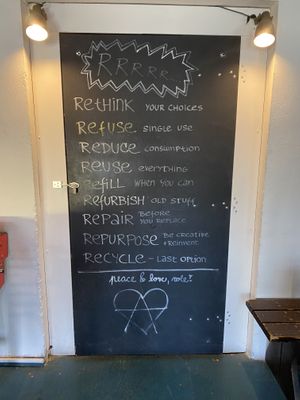 RRRRR...
RETHINK YOUR CHOICES
REFUSE SINGLE USE
REDUCE CONSUMPTION
REUSE EVERYTHING
REFILL WHEN YOU CAN
REFURBISH OLD STUFF
REPAIR BEFORE YOU REPLACE
REPURPOSE BE CREATIVE + REINVENT
RECYCLE - LAST OPTION
peace & love,